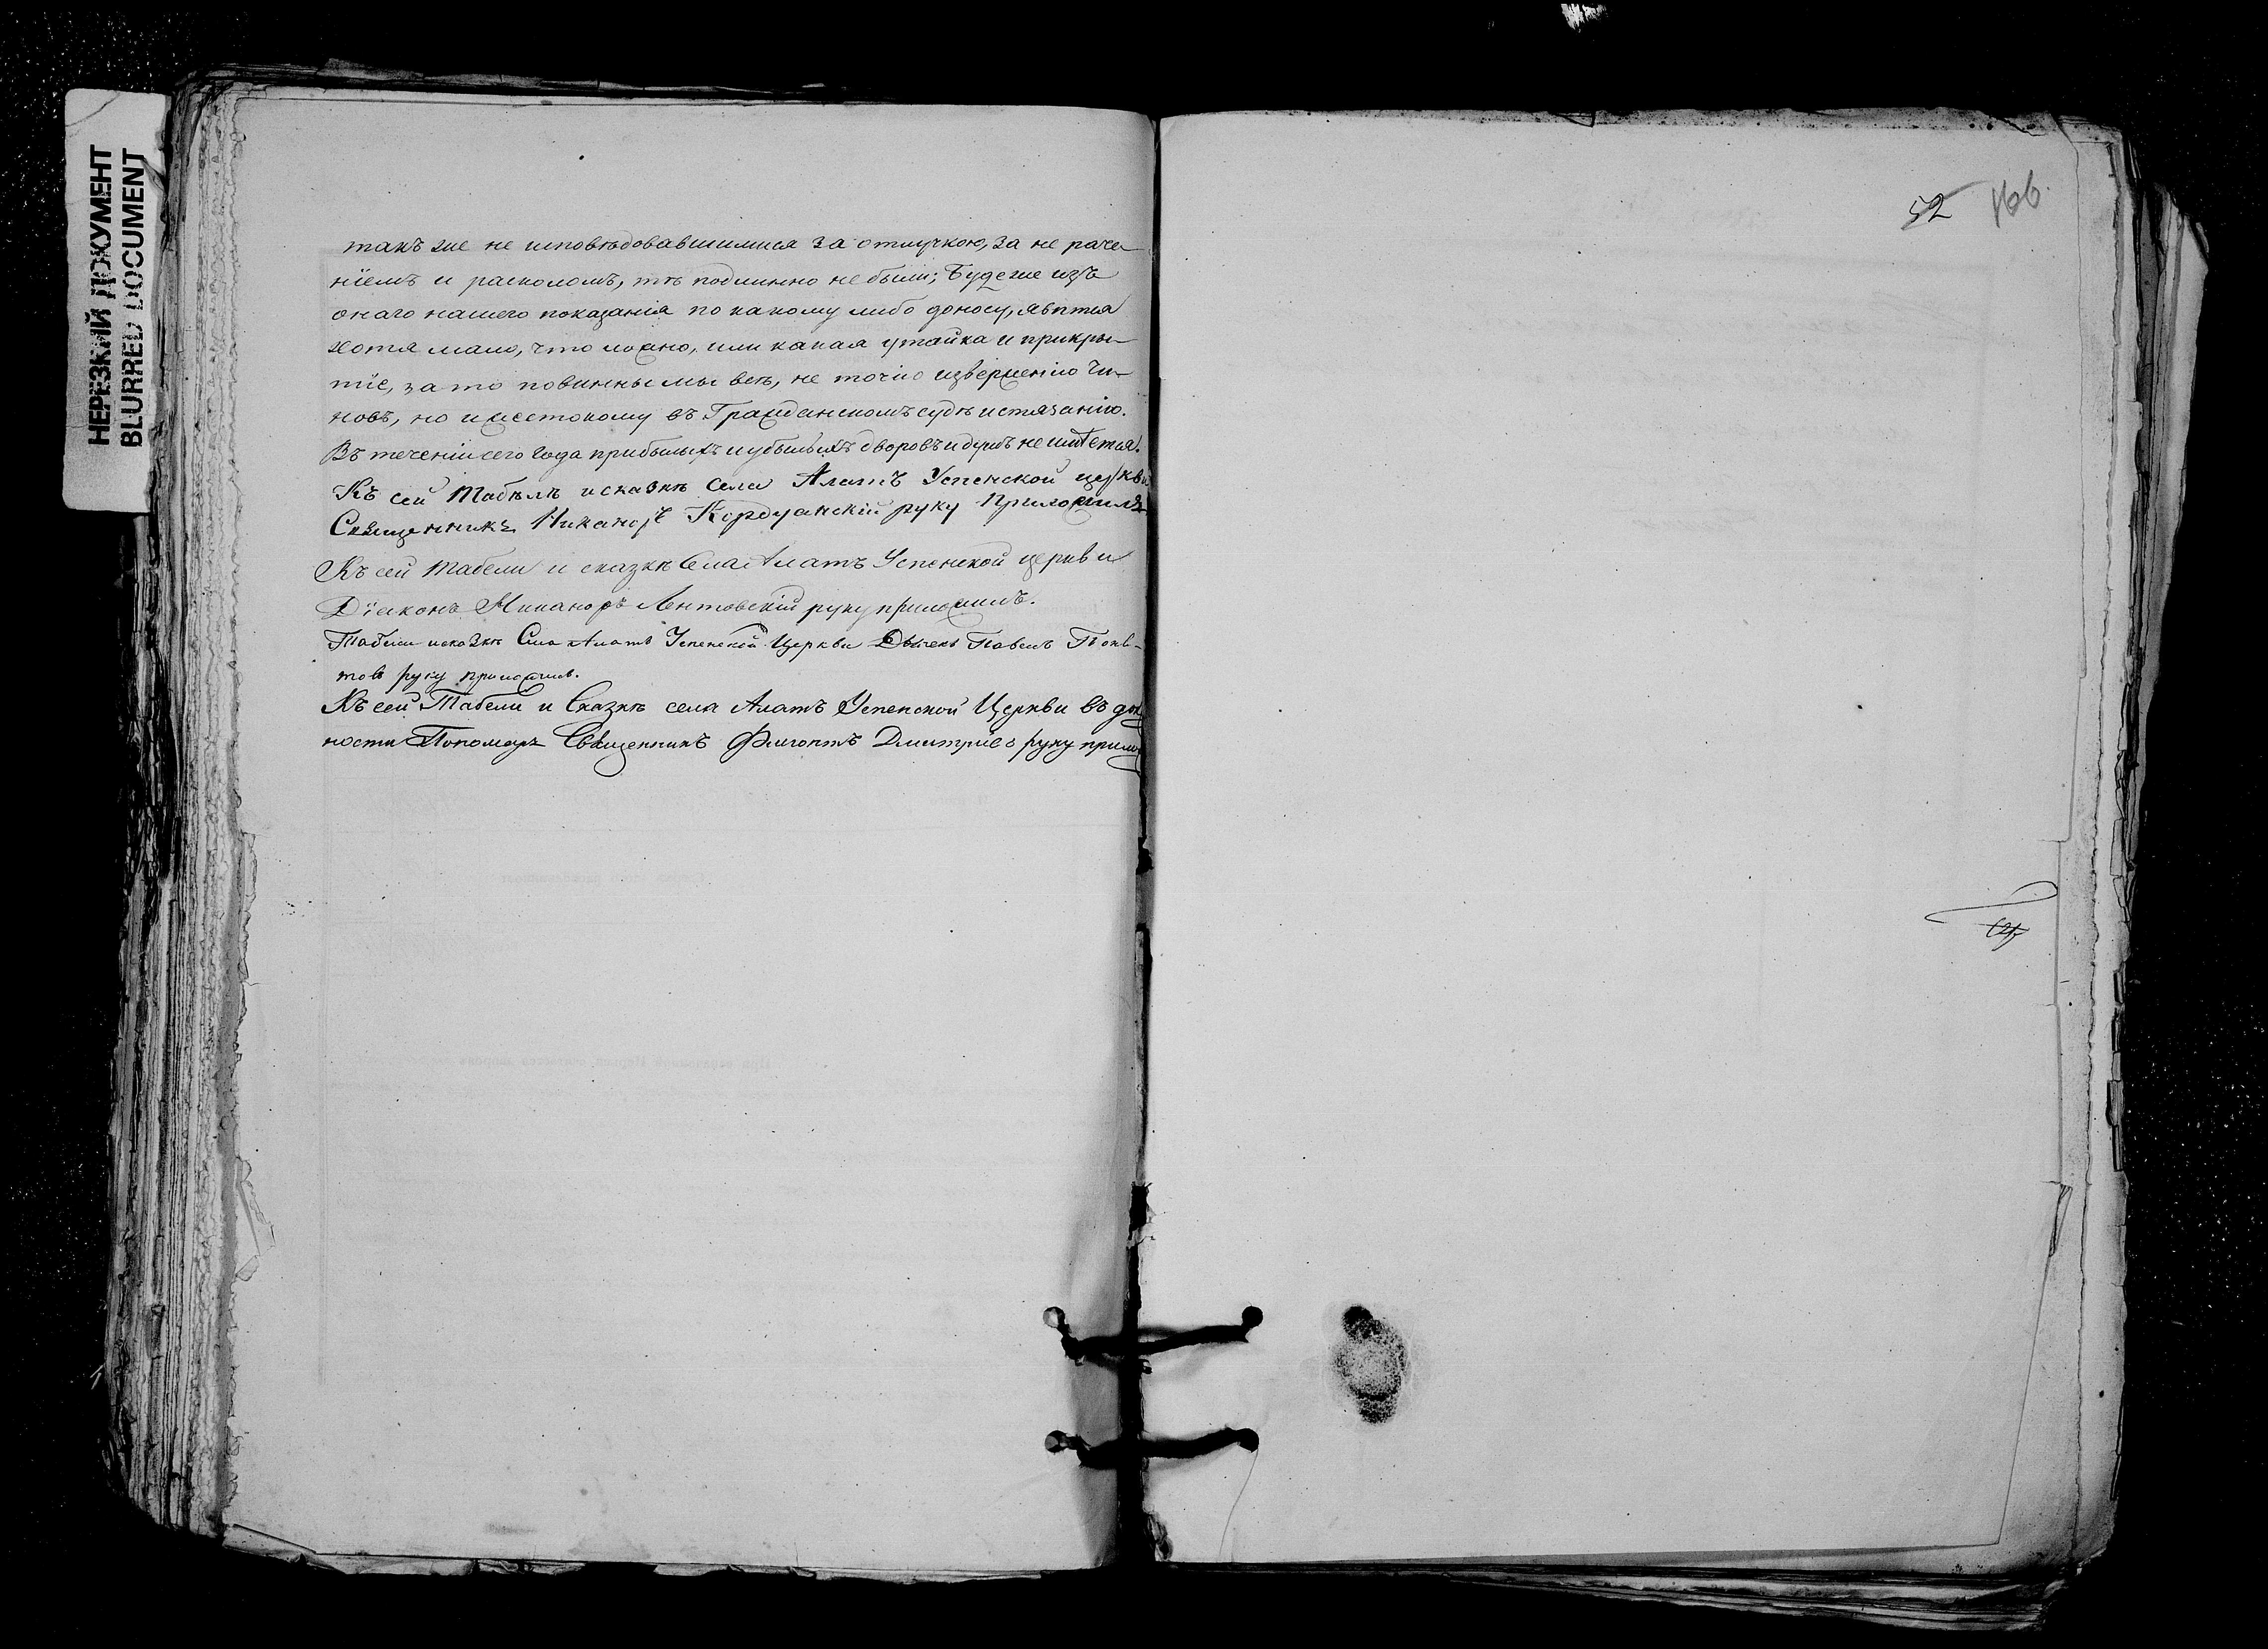 НЕРЕЗКИЙ ДОКУМЕНТ
BLURRED DOCUMENT
такъ же не исповѣдовавшимися за отлучкою, за не раче-
ніемъ и расколомъ, тѣ подлинно не были; Буде же изъ
онаго нашего показанія по какому либо доносу, явится
хотя мало, что ложно, или какая утайка и прикры-
тіе, за то повинны мы всѣ, не точію изверженію Чи-
новъ, но и жестокому въ Гражданскомъ судѣ истязанію.
Въ теченіи сего года прибылыхъ и убылыхъ дворовъ и душъ не имѣется.
Къ сей Табѣлѣ и сказкѣ села Алатъ Успенской церкви
Священникъ Никаноръ Кордуанскій руку Приложилъ
Къ сей табели и сказкѣ села Алатъ Успенской церкви
Діаконъ Никаноръ Лентовскій руку приложилъ.
Табели и сказкѣ Села Алатъ Успенской Церкви Дьячекъ Павелъ
руку приложилъ.
Къ сей Табели и Сказкѣ села Алатъ Успенской Церкви въ дол
ности Пономаря Священникъ Дмитріевъ руку прилож
52 166.